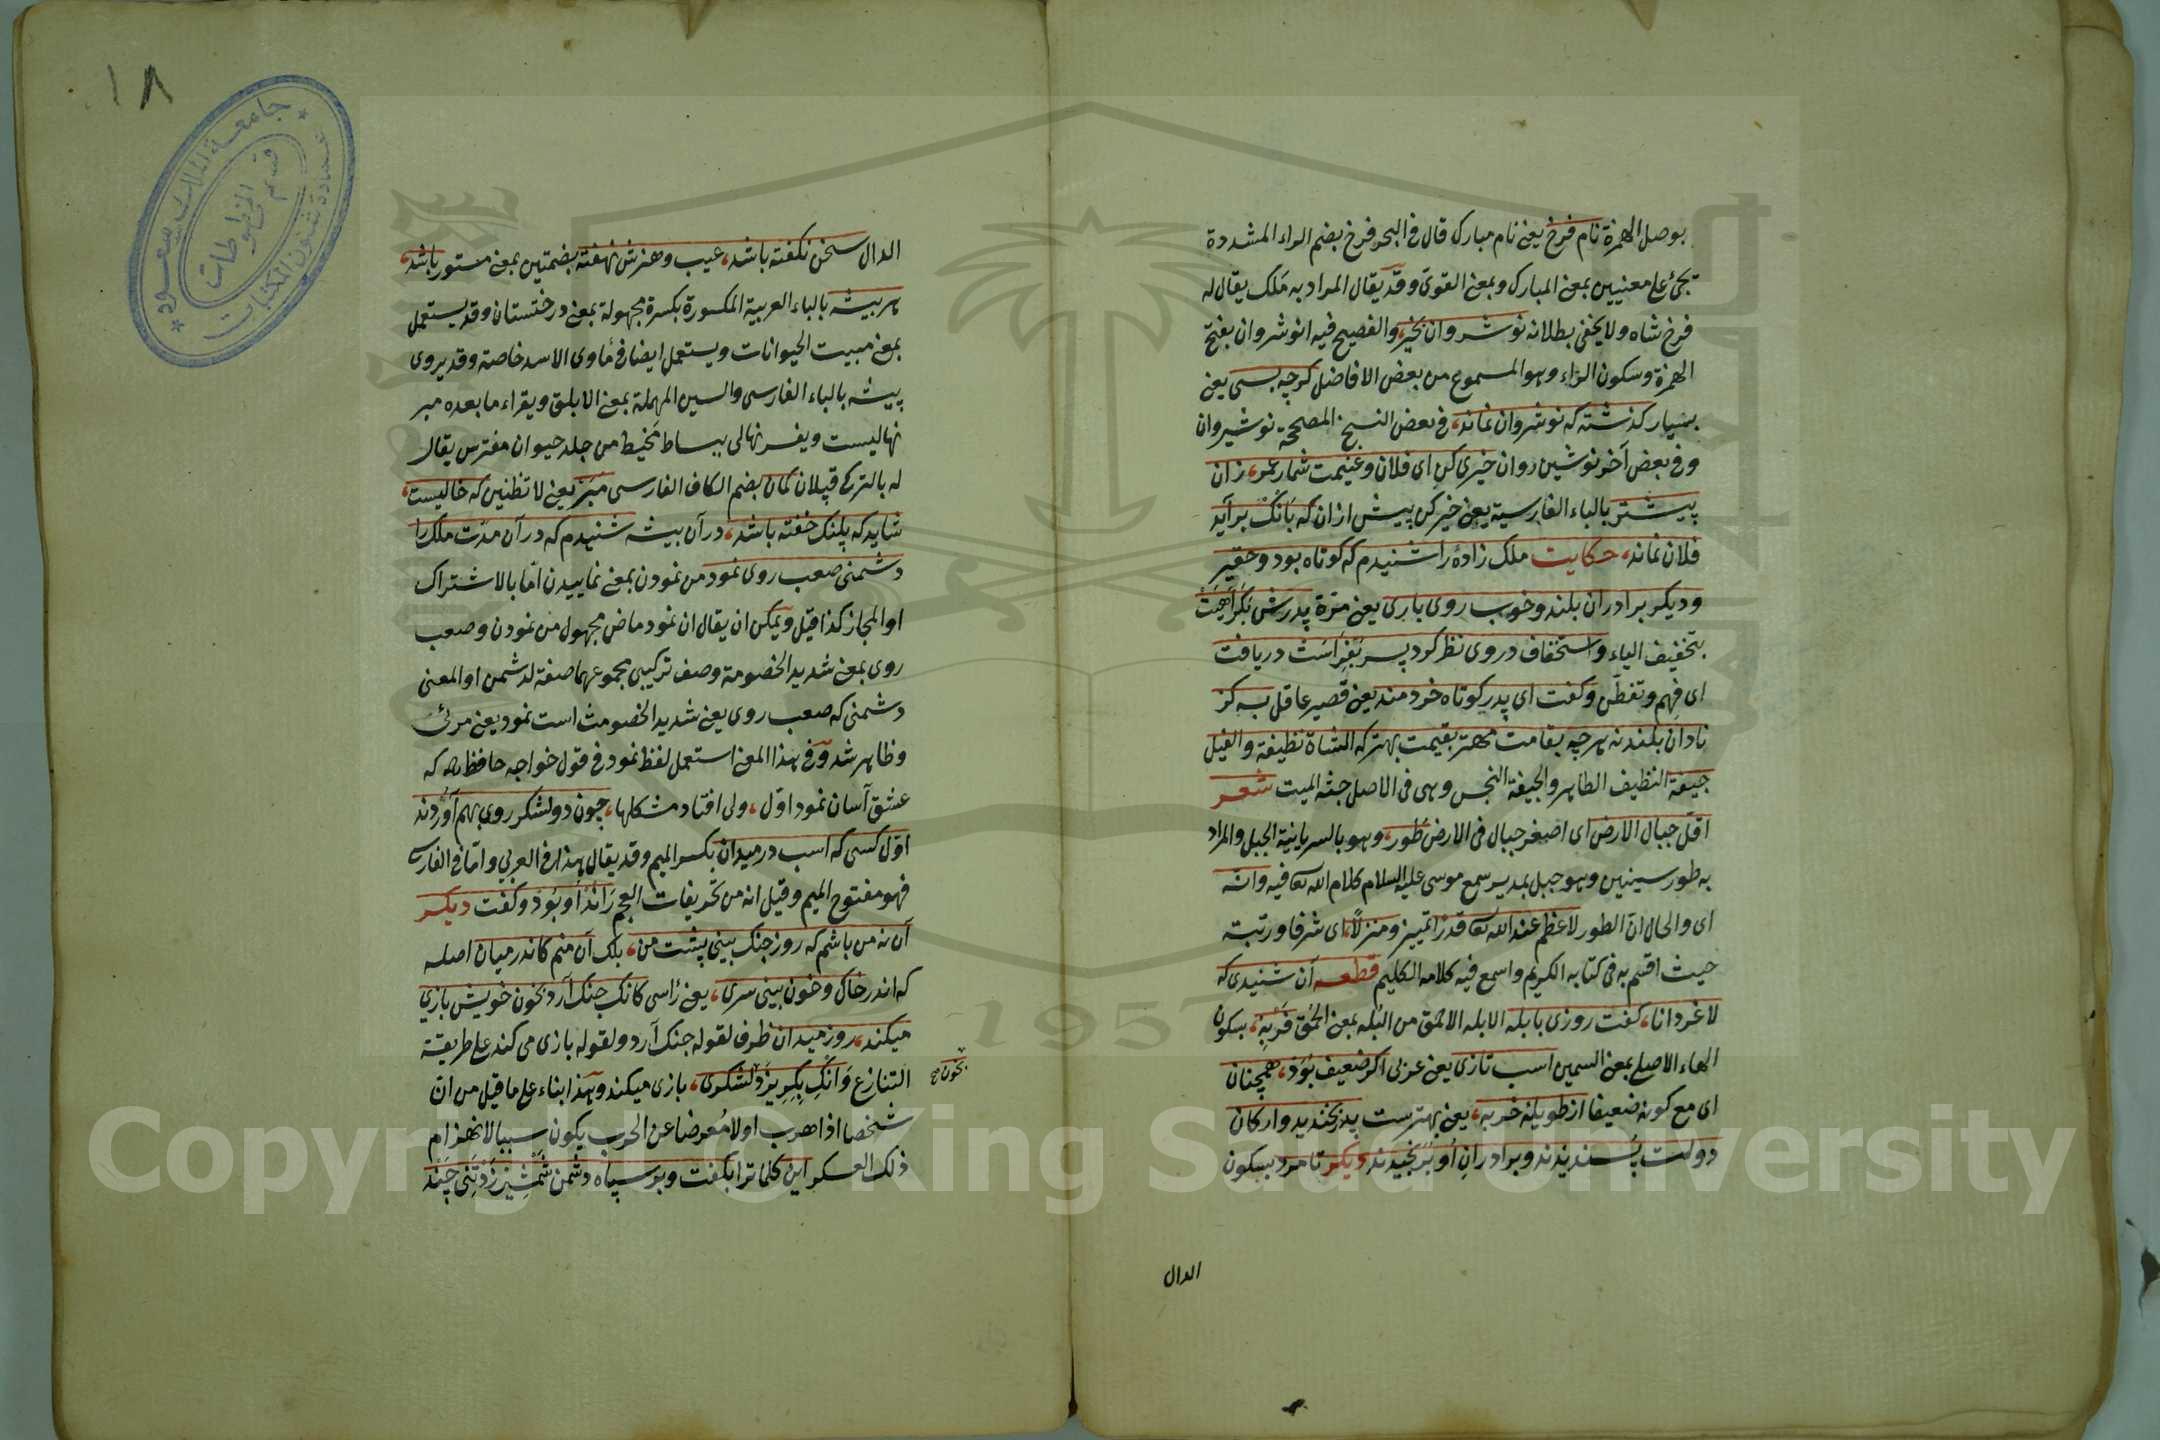 بوصل الهمزة نام فرخ يعنی نام مبارك قال فی البحر فرخ بضم الراء المشددة
تجئ علی معنيين بمعنی المبارك وبمعنی القوی وقد يقال المراد به ملك يقال له
فرخ شاه ولا يخفی بطلانه نوشروان بخير، والفصيح فيه انوشروان بفتح
الهمزة وسكون الراء وهو المسموع من بعض الافاضل كرچه بسی يعنی
بسيار كذشته كه نوشروان نماند، فی بعض النسخ المصححة نوشيروان
وفی بعض آخر نوشين روان خيری كن ای فلان وغنيمت شمار عمر، زان
پيشتر بالباء الفارسية يعنی خير كن پيش ازان كه بانك برآيد
فلان نماند، حكايت ملك زاده را شنيدم كه كوتاه بود وحقير
وديكر برادران بلند وخوب روی باری يعنی مرة پدرش بكراهيت
بتخفيف الياء واستخفاف در وی نظر كرد پسر بفراست دريافت
ای فهم وتفطن وكفت ای پدر كوتاه خردمند يعنی قصير عاقل به كز
نادان بلند نه هرچه بقامت مهتر بقيمت بهتر كه الشاة نظيفة والفيل
جيفة النظيف الطاهر والجيفة النجس وهی فی الاصل جثه الميت شعر
اقل جبال الارض ای اصغر جبال فی الارض طور، وهو بالسريانية الجبل والمراد
به طور سينين وهو جبل بمدين سمع موسی عليه السلام كلام الله تعا فيه وانه
ای والحال ان الطور لاعظم عند الله تعا قدرا تمييز ومنزلا، ای شرفا ورتبة
حيث اقسم به فی كتابه الكريم واسمع فيه كلامه الكليم قطعه آن شنيدی كه
لاغر دانا، كفت روزی بابله الابله الاحمق من البله بمعنی الحمق فربه، بسكون
الهاء الاصلی بمعنی السمين اسب تازی يعنی عربی اكر ضعيف بود، همچنان
ای مع كونه ضعيفا از طويلة خر به، يعنی بهترست پدر بخنديد واركان
دولت پسنديدند وبرادران او برنجيدند ديكر تا مرد بسكون
الدال
١٨
جامعة الملك سعود
عمادة شئون المكتبات
قسم المخطوطات
الدال سخن نكفته باشد، عيب وهنرش نهفته بضمتين بمعنی مستور باشد،
هر بيشه بالباء العربية المكسورة بكسرة مجهولة بمعنی درختستان وقد يستعمل
بمعنی مبيت الحيوانات ويستعمل ايضا فی مأوی الاسد خاصة وقد يروی
پيسه بالباء الفارسی والسين المهملة بمعنی الابلق ويقراء ما بعده مبر
نهاليست ويفسر نهالی ببساط مخيط من جلد حيوان مفترس يقال
له بالتركی قپلان كمان بضم الكاف الفارسی مبر يعنی لا تظنين كه خاليست،
شايد كه پلنك خفته باشد، در آن بيشه شنيدم كه در آن مدت ملك را
دشمنی صعب روی نمود من نمودن بمعنی نماييدن اما بالاشتراك
او المجاز كذا قيل ويمكن ان يقال ان نمود ماض مجهول من نمودن وصعب
روی بمعنی شديد الخصومة وصف تركيبی مجموعهما صفة لدشمن او المعنی
دشمنی كه صعب روی يعنی شديد الخصومت است نمود يعنی مرئی
وظاهر شد وفی هذا المعنی استعمل لفظ نمود فی قول خواجه حافظ ره كه
عشق آسان نمود اول، ولی افتاد مشكلها، چون دو لشكر روی بهم آوردند
اول كسی كه اسب در ميدان بكسر الميم وقد يقال هذا فی العربی واما فی الفارسی
فهو مفتوح الميم وقيل انه من تحريفات العجم راند او بود وكفت ديكر
آن نه من باشم كه روز جنك بينی پشت من، بلك آن منم كاندر ميان اصله
كه اندر خاك وخون بينی سری، يعنی رأسی كانك جنك آرد بخون خويش بازی
ميكند، روز ميدان ظرف لقوله جنك آرد ولقوله بازی می كند علی طريقة
التنازع وانك بكريزد لشكری، بازی ميكند وهذا بناء علی ما قيل من ان
بخون صح
شخصا اذا هرب اولا معرضا عن الحرب يكون سببا لانهزام
ذلك العسكر اين كلمات را بكفت وبر سپاه دشمن شمشير زد تنی چند
Copyright © King Saud University
1957